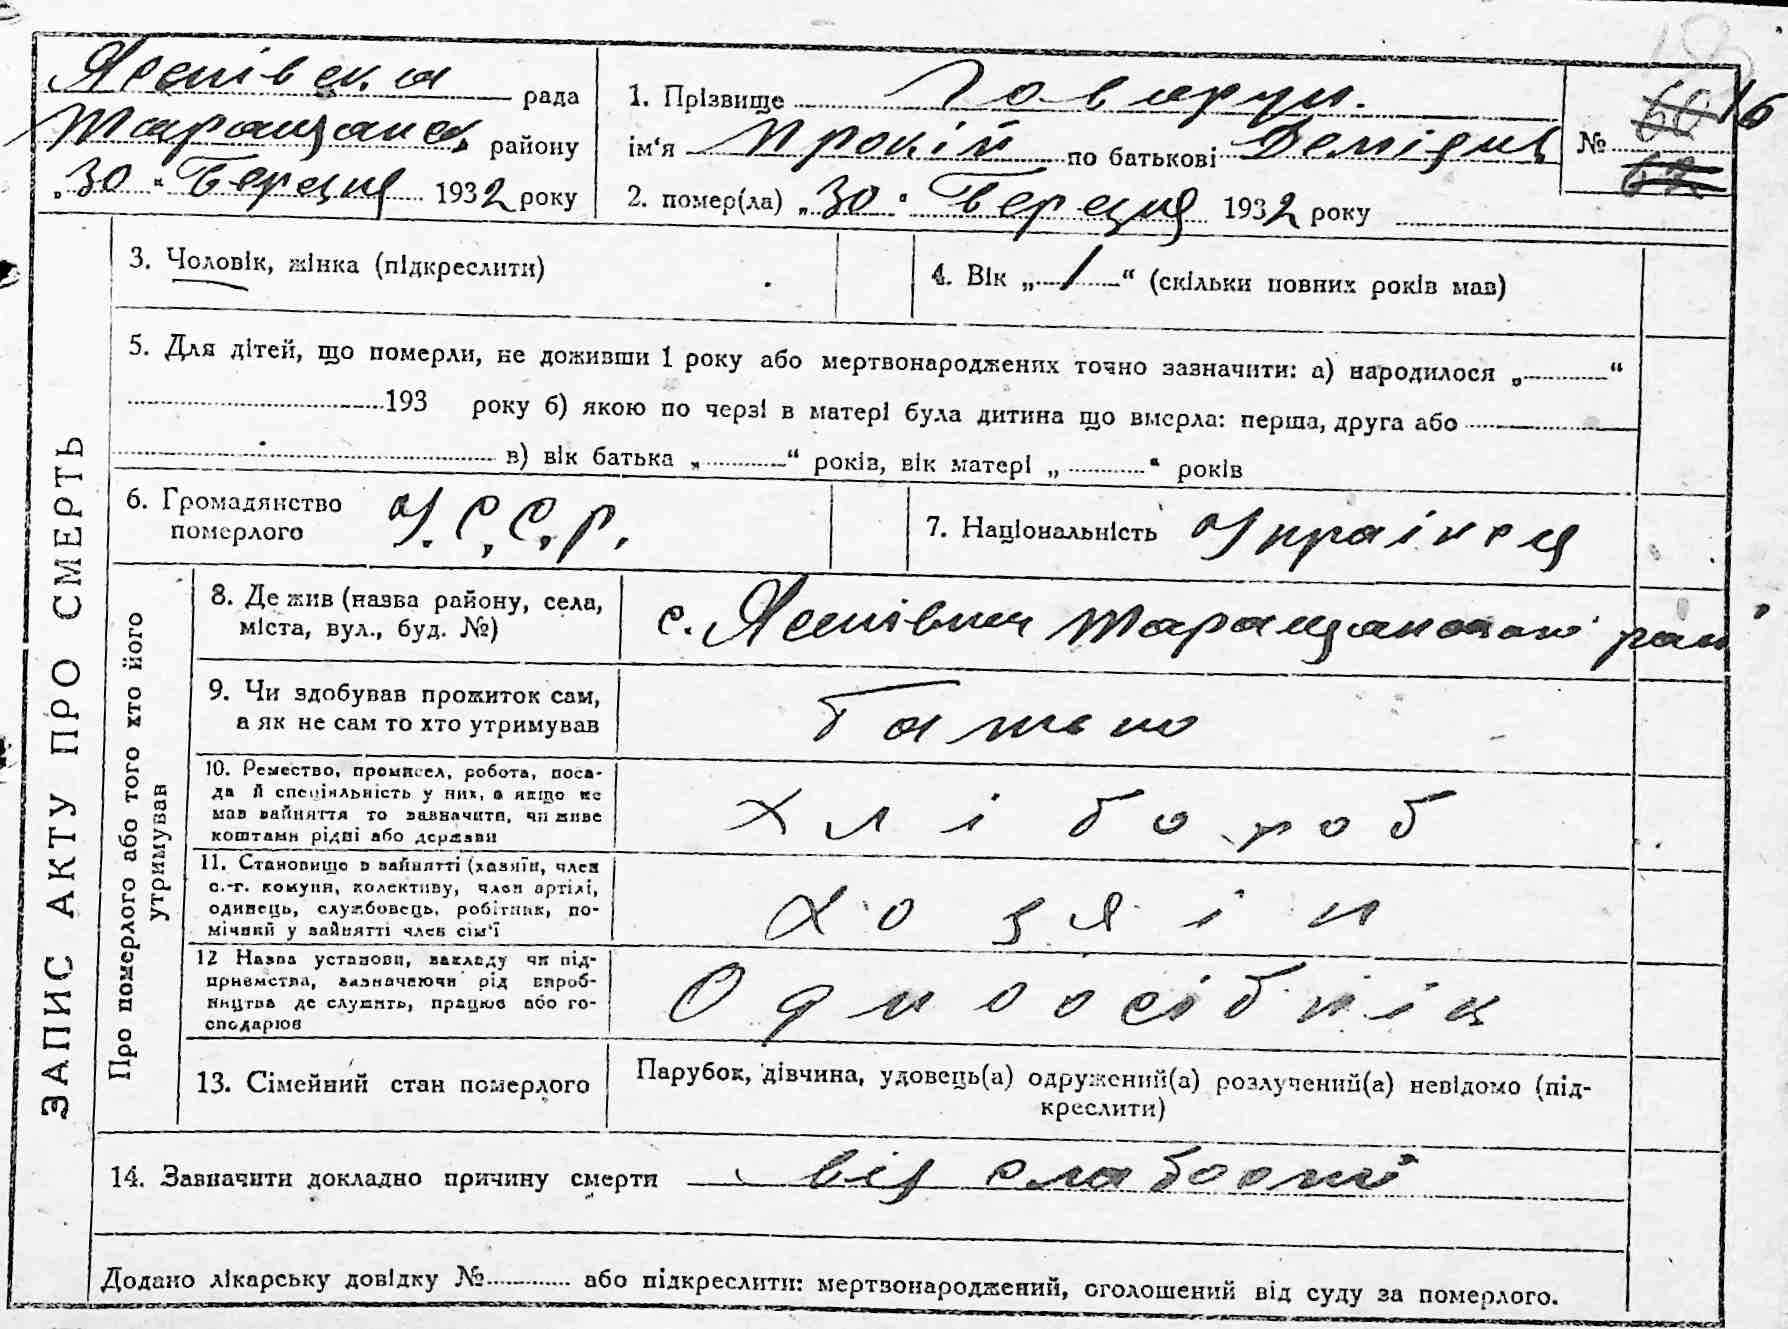 Ясенівска рада
Таращанск. району
„30“ Березня 1932 року
1. Прізвище Говорун.
ім'я Прокіп по батькові Демідиц
2. помер(ла) „30“ Березня 1932 року
№ 60 16
62
3. Чоловік, жінка (підкреслити)
4. Вік „1“ (скільки повних років мав)
5. Для дітей, що померли, не доживши 1 року або мертвонароджених точно зазначити: а) народилося „ “
193 року б) якою по черзі в матері була дитина що вмерла: перша, друга або
в) вік батька „ “ років, вік матері „ “ років
6. Громадянство
померлого У.С.С.Р.
7. Національність Українец
ЗАПИС АКТУ ПРО СМЕРТЬ
Про померлого або того хто його
утримував
8. Де жив (назва району, села,
міста, вул., буд. №)
с. Ясенівки Таращанского рай
9. Чи здобував прожиток сам,
а як не сам то хто утримував
Батько
10. Ремество, промисел, робота, поса-
да й спеціяльність у них, а якщо не
мав зайняття то зазначити, чи живе
коштами рідні або держави
хлібороб
11. Становище в зайнятті (хазяїн, член
с.-г. комуни, колективу, член артілі,
одинець, службовець, робітник, по-
мічний у зайнятті член сім'ї
хозяін
12 Назва установи, закладу чи під-
приємства, зазначаючи рід вироб-
ництва де служить, працює або го-
сподарює
Одноосібнік
13. Сімейний стан померлого
Парубок, дівчина, удовець(а) одружений(а) розлучений(а) невідомо (під-
креслити)
14. Зазначити докладно причину смерти від слабости
Додано лікарську довідку № або підкреслити: мертвонароджений, оголошений від суду за померлого.